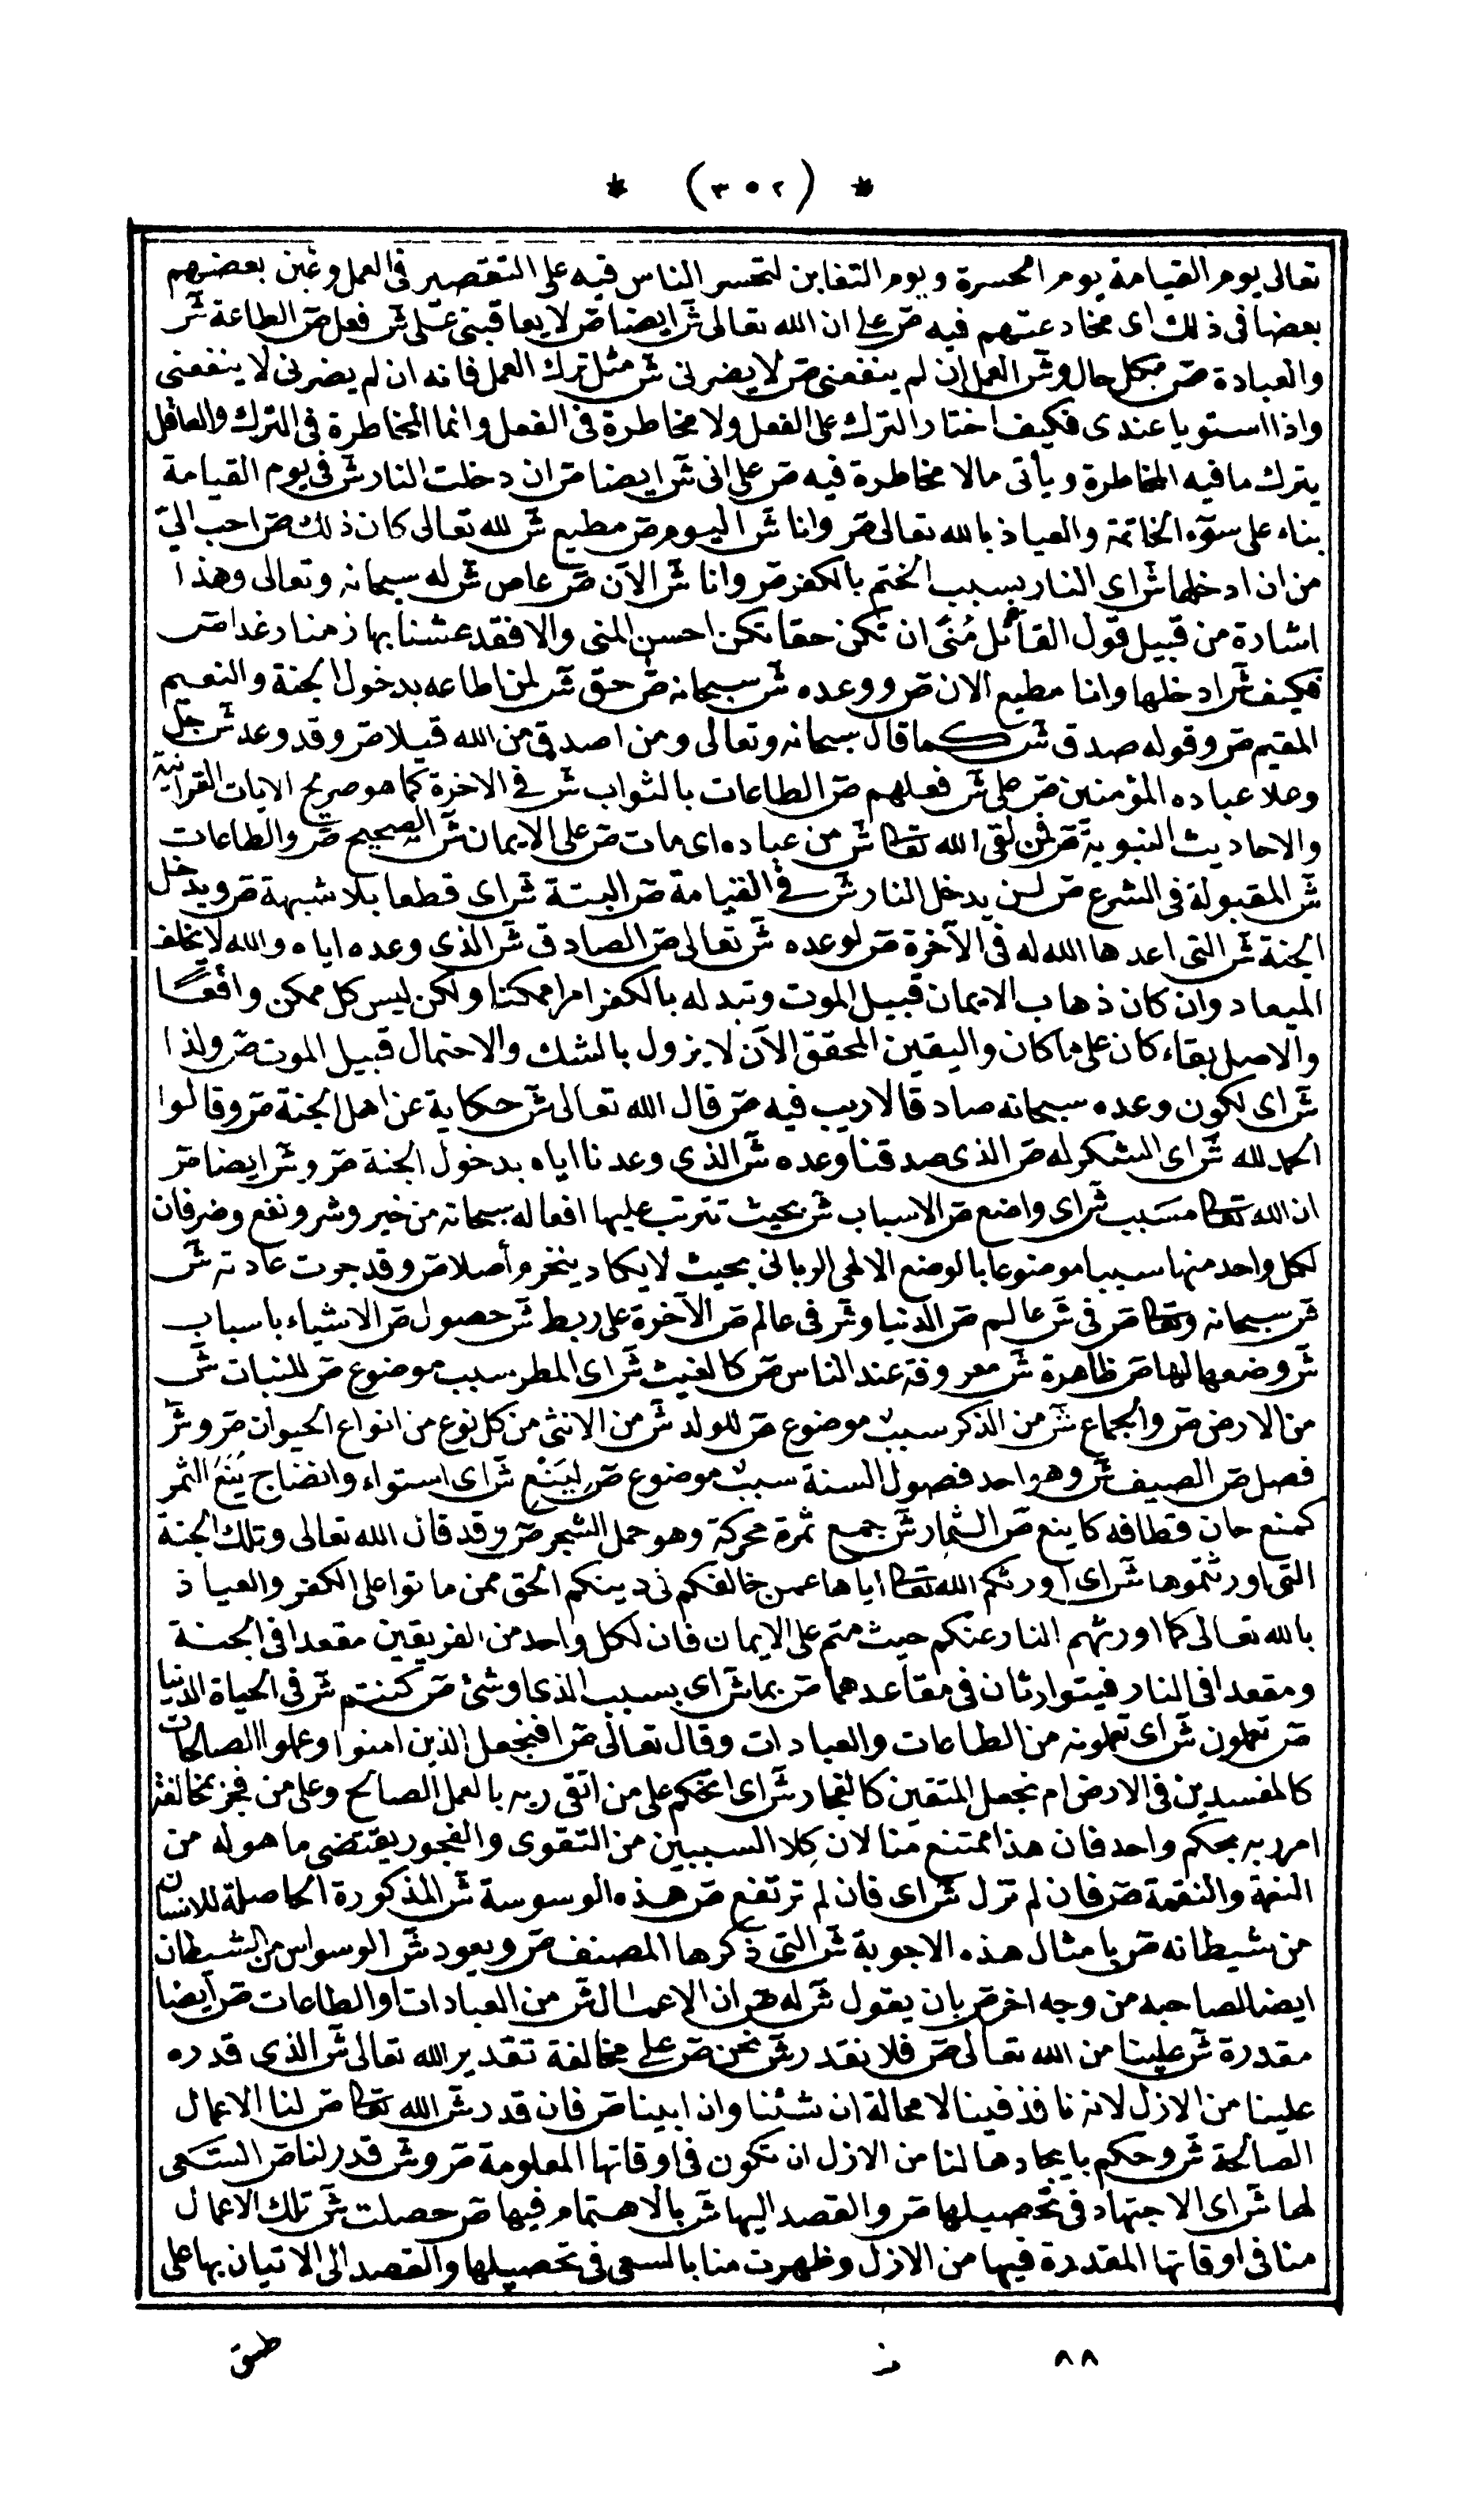 * (٣٥٢) *
تعالى يوم القيامة يوم الحسرة ويوم التغابن لتحسر الناس فيه على التقصير فى العمل وغبن بعضهم
بعضا فى ذلك اى مخادعتهم فيه ص على ان الله تعالى ش ايضا ص لا يعاقبنى على ش فعل ص الطاعة ش
والعبادة ص بكل حال و ش العمل ان لم ينفعنى ص لا يضرنى ش مثل ترك العمل فانه ان لم يضرنى لا ينفعنى
واذا استويا عندى فكيف اختار الترك على الفعل ولا مخاطرة فى الفعل وانما المخاطرة فى الترك والعاقل
يترك ما فيه المخاطرة ويأتى مالا مخاطرة فيه ص على انى ش ايضا ص ان دخلت النار ش فى يوم القيامة
بناء على سوء الخاتمة والعياذ بالله تعالى ص وانا ش اليوم ص مطيع ش لله تعالى كان ذلك ص احب الىّ
من ان ادخلها ش اى النار بسبب الختم بالكفر ص وانا ش الآن ص عاص ش له سبحانه وتعالى وهذا
اشارة من قبيل قول القائل مُنًى ان تكن حقا تكن احسن المنى والا فقد عشنا بها زمنا رغدا ص
فكيف ش ادخلها وانا مطيع الان ص ووعده ش سبحانه ص حق ش لمن اطاعه بدخول الجنة والنعيم
المقيم ص وقوله صدق ش كما قال سبحانه وتعالى ومن اصدق من الله قيلا ص وقد وعد ش جل
وعلا عباده المؤمنين ص على ش فعلهم ص الطاعات بالثواب ش فى الاخرة كما هو صريح الايات القرانية
والاحاديث النبوية ص فمن لقى الله تعالى ش من عباده اى مات ص على الايمان ش الصحيح ص والطاعات
ش المقبولة فى الشرع ص لن يدخل النار ش فى القيامة ص البتة ش اى قطعا بلا شبهة ص ويدخل
الجنة ش التى اعدها الله له فى الآخرة ص لوعده ش تعالى ص الصادق ش الذى وعده اياه والله لا يخلف
الميعاد وان كان ذهاب الايمان قبيل الموت وتبدله بالكفر امرا ممكنا ولكن ليس كل ممكن واقعًا
والاصل بقاء كان على ما كان واليقين المحقق الآن لا يزول بالشك والاحتمال قبيل الموت ص ولذا
ش اى لكون وعده سبحانه صادقا لا ريب فيه ص قال الله تعالى ش حكاية عن اهل الجنة ص وقالوا
الحمد لله ش اى الشكر له ص الذى صدقنا وعده ش الذى وعدنا اياه بدخول الجنة ص و ش ايضا ص
ان الله تعالى مسَبب ش اى واضع ص الاسباب ش بحيث تترتب عليها افعاله سبحانه من خير وشر ونفع وضر فان
لكل واحد منها سببا موضوعا بالوضع الالهى الربانى بحيث لا يكاد ينخرم أصلا ص وقد جرت عادته ش
ش سبحانه وتعالى ص فى ش عالم ص الدنيا و ش فى عالم ص الآخرة على ربط ش حصول ص الاشياء باسباب
ش وضعها لها ص ظاهرة ش معروفة عند الناس ص كالغيث ش اى المطر سبب موضوع ص للنبات ش
من الارض ص والجماع ش من الذكر سببٌ موضوع ص للولد ش من الانثى من كل نوع من انواع الحيوان ص و ش
فصل ص الصيف ش وهو احد فصول السنة سببٌ موضوع ص لِيَنْعِ ش اى استواء وانضاج يَنَعَ الثمر
كمنع حان قطافه كاينع ص الثمار ش جمع ثمرة محركة وهو حمل الشجر ص وقد قال الله تعالى وتلك الجنة
التى اورثتموها ش اى اورثكم الله تعالى اياها عمن خالفكم فى دينكم الحق ممن ماتوا على الكفر والعياذ
بالله تعالى كما اورثهم النار عنكم حيث متم على الايمان فان لكل واحد من الفريقين مقعدا فى الجنة
ومقعدا فى النار فيتوارثان فى مقاعدهما ص بما ش اى بسبب الذى او شئ ص كنتم ش فى الحياة الدنيا
ص تعملون ش اى تعملونه من الطاعات والعبادات وقال تعالى ص افنجعل الذين امنوا وعملوا الصالحات
كالمفسدين فى الارض ام نجعل المتقين كالفجار ش اى انحكم على من اتقى ربه بالعمل الصالح وعلى من فجر بمخالفة
امر ربه بحكم واحد فان هذا ممتنع منا لان كِلا السببين من التقوى والفجور يقتضى ما هو له من
النعمة والنقمة ص فان لم تزل ش اى فان لم ترتفع ص هذه الوسوسة ش المذكورة الحاصلة للانسان
من شيطانه ص بامثال هذه الاجوبة ش التى ذكرها المصنف ص ويعود ش الوسواس من الشيطان
ايضا لصاحبه من وجه اخر ص بان يقول ش له ص ان الاعمال ش من العبادات والطاعات ص ايضا
مقدرة ش علينا من الله تعالى ص فلا نقدر ش نحن ص على مخالفة تقدير الله تعالى ش الذى قدره
علينا من الازل لانه نافذ فينا لا محالة ان شئنا وان ابينا ص فان قدر ش الله تعالى ص لنا الاعمال
الصالحة ش وحكم بايجادها لنا من الازل ان تكون فى اوقاتها المعلومة ص و ش قدر لنا ص السَعى
لها ش اى الاجتهاد فى تحصيلها ص والقصد اليها ش بالاهتمام فيها ص حصلت ش تلك الاعمال
منا فى اوقاتها المقدرة فيها من الازل وظهرت منا بالسعى فى تحصيلها والقصد الى الاتيان بها على
٨٨
طبق